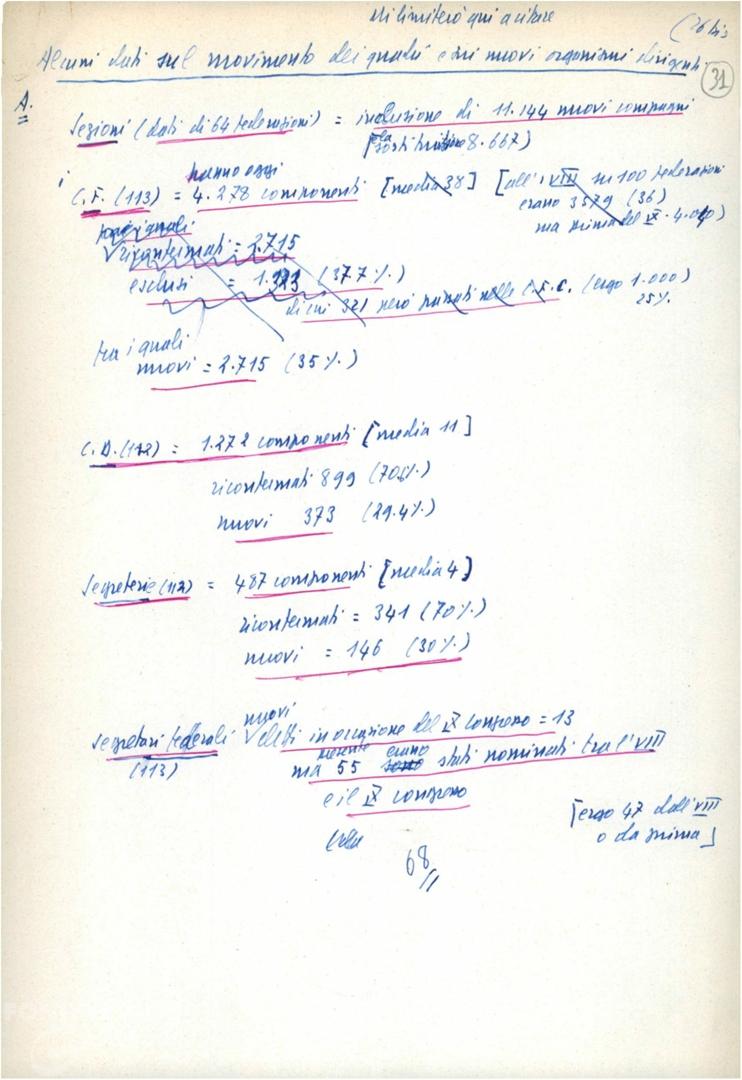 Mi limiterò qui a citare
(26 bis
Alcuni dati sul movimento dei quadri e sui nuovi organismi dirigenti
31
A.
Sezioni (dati di 64 federazioni) = inclusione di 11.144 nuovi compagni
sostituiti 8.667)
hanno oggi
C.F. (113) = 4.278 componenti [media 38] [all'VIII su 100 federazioni
erano 3579 (36)
ma prima del IX. 4.040)
tra i quali
riconfermati = 2.715
esclusi = 1.323 (37 7%)
di cui 321 però passati nelle C.F.C. (ergo 1.000)
25%
tra i quali
nuovi = 2.715 (35%)
C.D. (112) = 1.272 componenti [media 11]
riconfermati 899 (70%)
nuovi 373 (29.4%)
Segreterie (112) = 487 componenti [media 4]
riconfermati = 341 (70%)
nuovi = 146 (30%)
nuovi
Segretari federali eletti in occasione del IX congresso = 13
(113)
erano
ma 55 sono stati nominati tra l'VIII
e il IX congresso
[ergo 47 dall'VIII
o da prima]
68